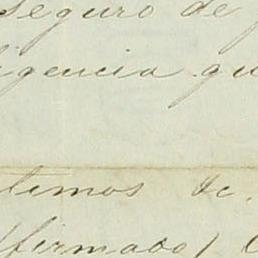 seguro de
igencia qu
lemos &c.
(firmado)